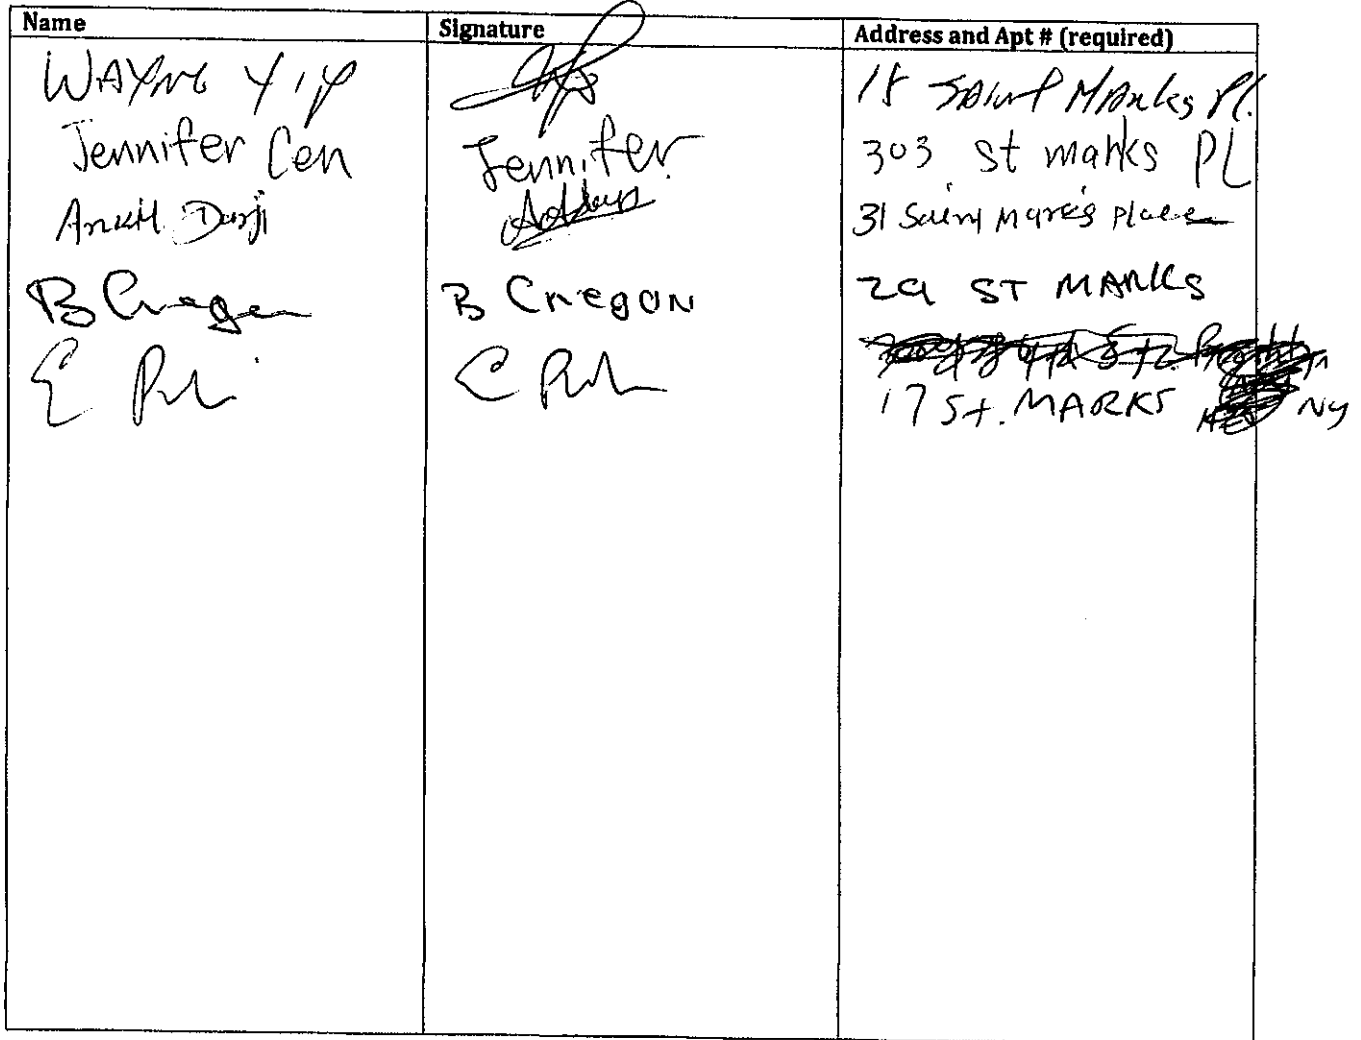 Name Signature Address and Apt # (required)
WAYNE YIP 18 SAINT MARKS Pl.
Jennifer Cen Jennifer 303 St marks PL
31 Saint Mark's Place
B Cregan B CregoN 29 ST MARKS
E C
17 St. MARKS NY